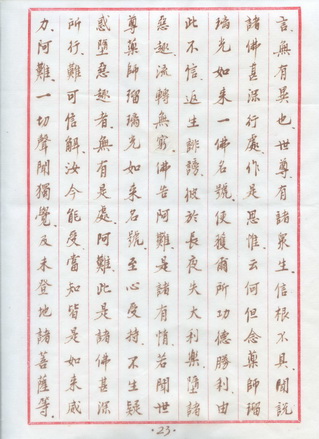 言無有異也世尊有諸衆生信根不具聞說
諸佛甚深行處作是思惟云何但念藥師瑠
璃光如来一佛名號便獲爾所功德勝利由
此不信返生誹謗彼於長夜失大利樂墮諸
惡趣流轉無窮佛告阿難是諸有情若聞世
尊藥師瑠璃光如来名號至心受持不生疑
惑墮惡趣者無有是處阿難此是諸佛甚深
所行難可信觧汝今能受當知皆是如来威
力阿難一切聲聞獨覺及未登地諸菩薩等
·23·